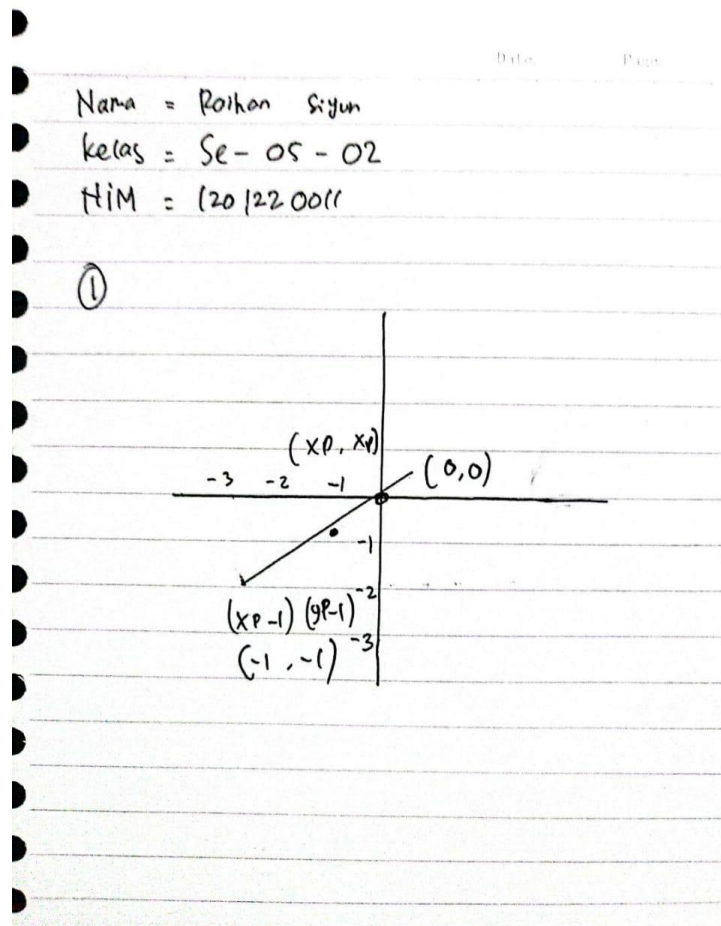 Date Page
Nama = Roihan Siyun
Kelas = Se - 05 - 02
NiM = 1201220011
1
(xp, xp)
(0,0)
-3 -2 -1
-1
-2
(xp-1) (yp-1)
-3
(-1, -1)